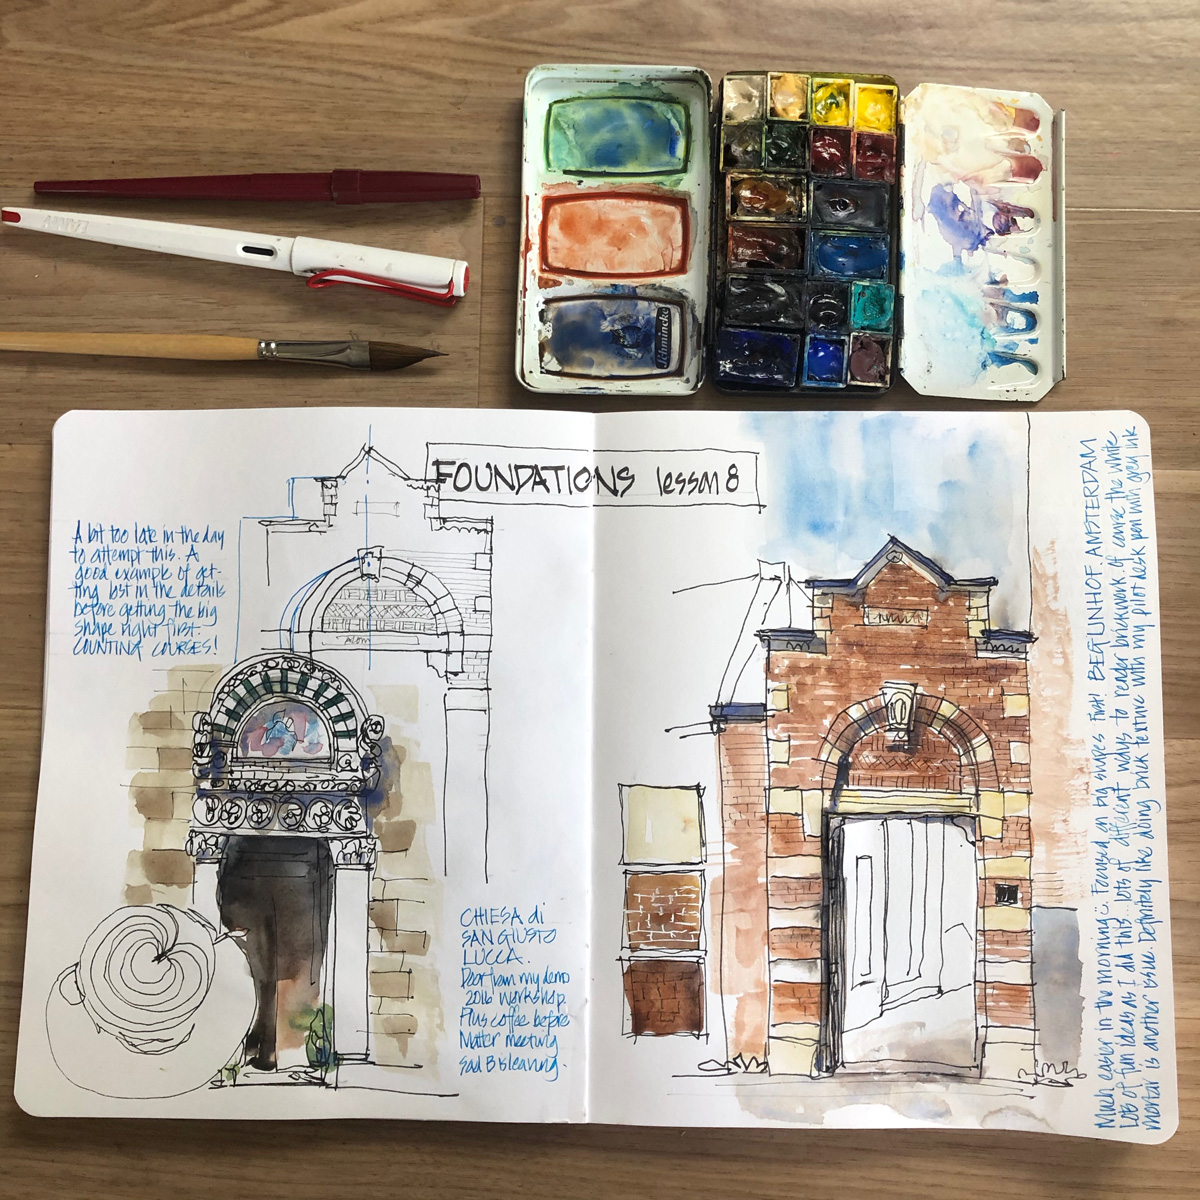 FOUNDATIONS lesson 8
A bit too late in the day
to attempt this. A
good example of get-
ting lost in the details
before getting the big
shape right first.
COUNTING COURSES!
CHIESA di
SAN GIUSTO
LUCCA.
Door from my demo
2016 workshop.
Plus coffee before
Matter meeting
Sad B is leaving.
Much easier in the morning! Focused on big shapes first! BEGIJNHOF AMSTERDAM
Lots of fun ideas as I did this... lots of different ways to render brickwork. Of course the white
mortar is another issue. Definitely like doing brick texture with my pilot desk pen with grey ink
Schmincke
LAMY